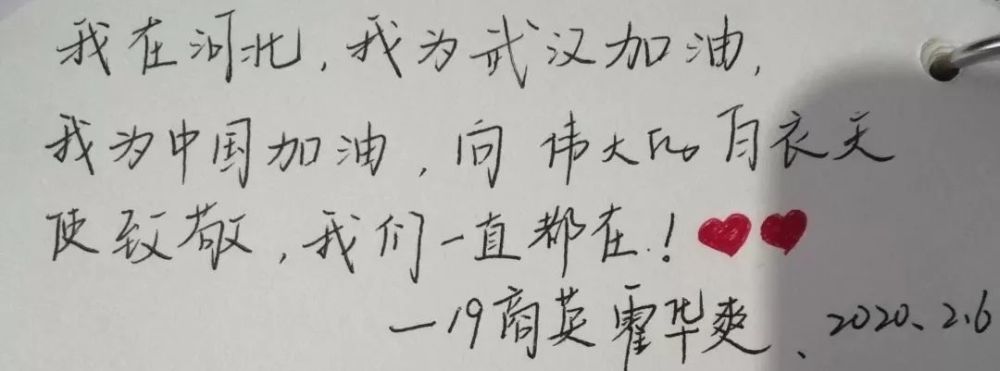 我在河北,我为武汉加油,
我为中国加油,向伟大的白衣天
使致敬,我们一直都在!
—19商英霍华爽、2020、2.6